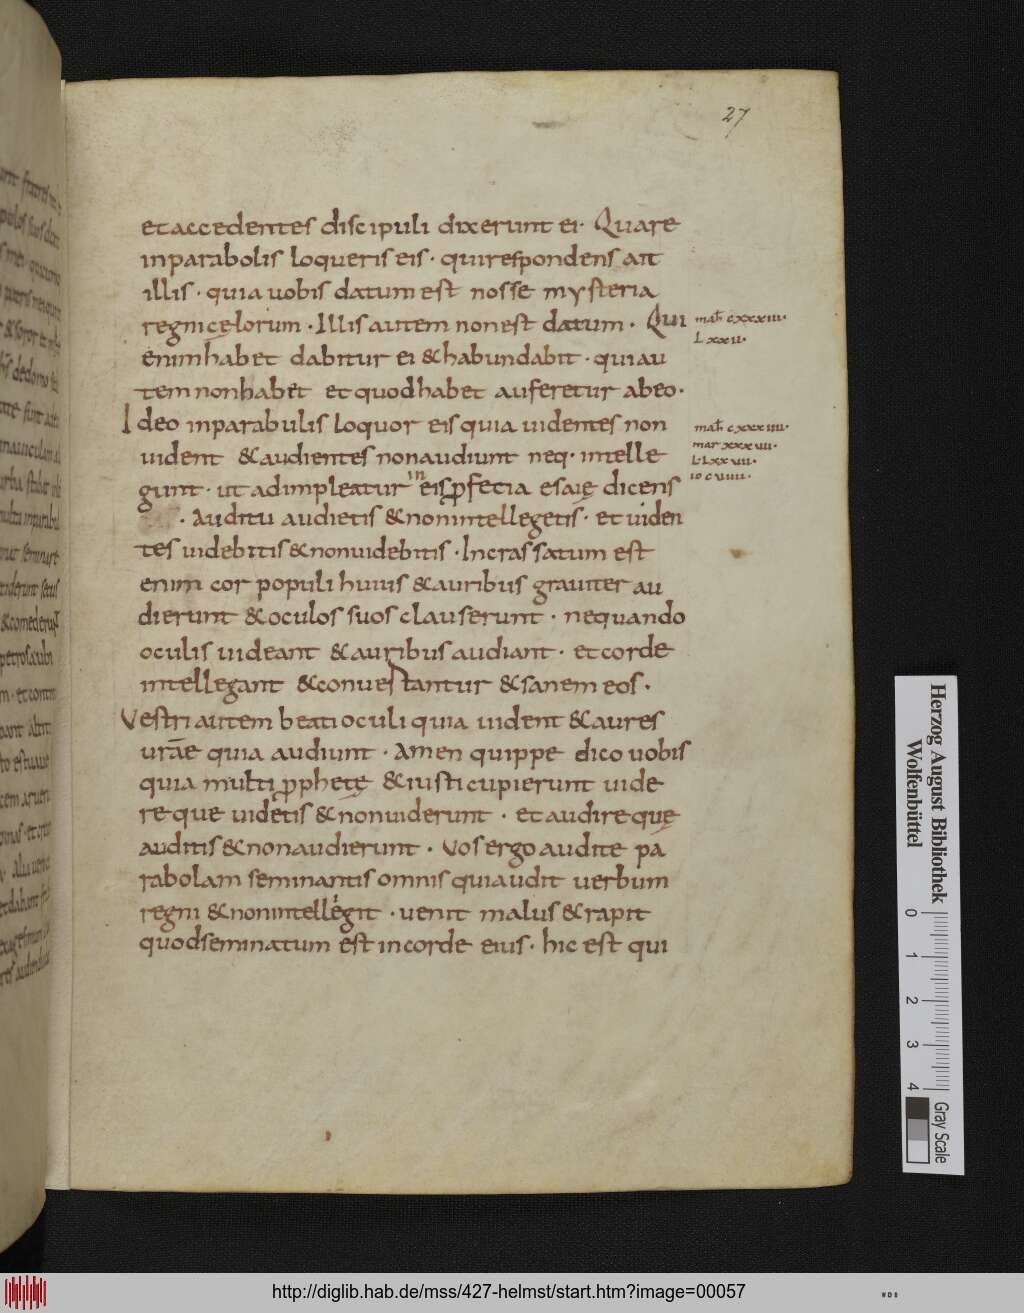 27
et accedentes discipuli dixerunt ei · Quare
inparabolis loqueris eis · quirespondens ait
illis · quia uobis datum est nosse mysteria
regni cęlorum · Illis autem non est datum · Qui
enim habet dabitur ei & habundabit · qui au
tem non habet et quod habet auferetur abeo ·
Ideo inparabulis loquor eis quia uidentes non
uident & audientes non audiunt neq· intelle
gunt · ut adimpleatur in eis ꝓfetia esaię dicens
· Auditu audietis & non intellegetis · et uiden
tes uidebitis & non uidebitis · Incrassatum est
enim cor populi huius & auribus grauiter au
dierunt & oculos suos clauserunt · nequando
oculis uideant & auribus audiant · et corde
intellegant & conuertantur & sanem eos ·
Vestri autem beati oculi quia uident & aures
urāe quia audiunt · Amen quippe dico uobis
quia multi ꝓphetę & iusti cupierunt uide
re que uidetis & non uiderunt · et audire quę
auditis & non audierunt · Uos ergo audite pa
rabolam seminantis omnis qui audit uerbum
regni & non intellegit · uenit malus & rapit
quod seminatum est in corde eius · hic est qui
mat̄ cxxxiii·
L xxii·
mat̄ cxxxiiii·
mar xxxvii·
L·Lxxvii·
io cviiii·
Herzog August Bibliothek
Wolfenbüttel
0 1 2 3 4
Gray Scale
http://diglib.hab.de/mss/427-helmst/start.htm?image=00057